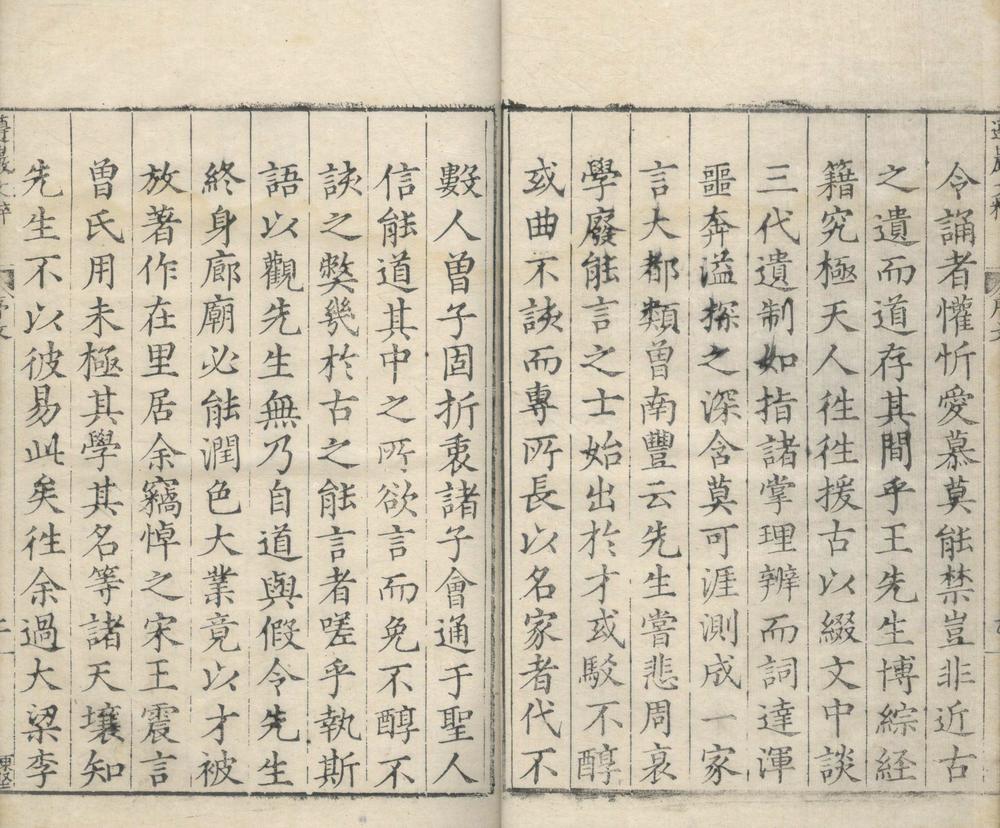 令誦者懽忻愛慕莫能禁豈非近古
之遺而道存其間乎王先生博綜経
籍究極天人徃徃援古以綴文中談
三代遺制如指諸掌理辨而詞達渾
噩奔溢探之深含莫可涯測成一家
言大都類曾南豐云先生嘗悲周衰
學廢能言之士始出於才或駁不醇
或曲不該而專所長以名家者代不
數人曾子固折衷諸子會通于聖人
信能道其中之所欲言而免不醇不
該之獘㡬於古之能言者嗟乎執斯
語以觀先生無乃自道與假令先生
終身廊廟必能潤色大業竟以才被
放著作在里居余竊悼之宋王震言
曾氏用未極其學其名等諸天壤知
先生不以彼易此矣徃余過大梁李